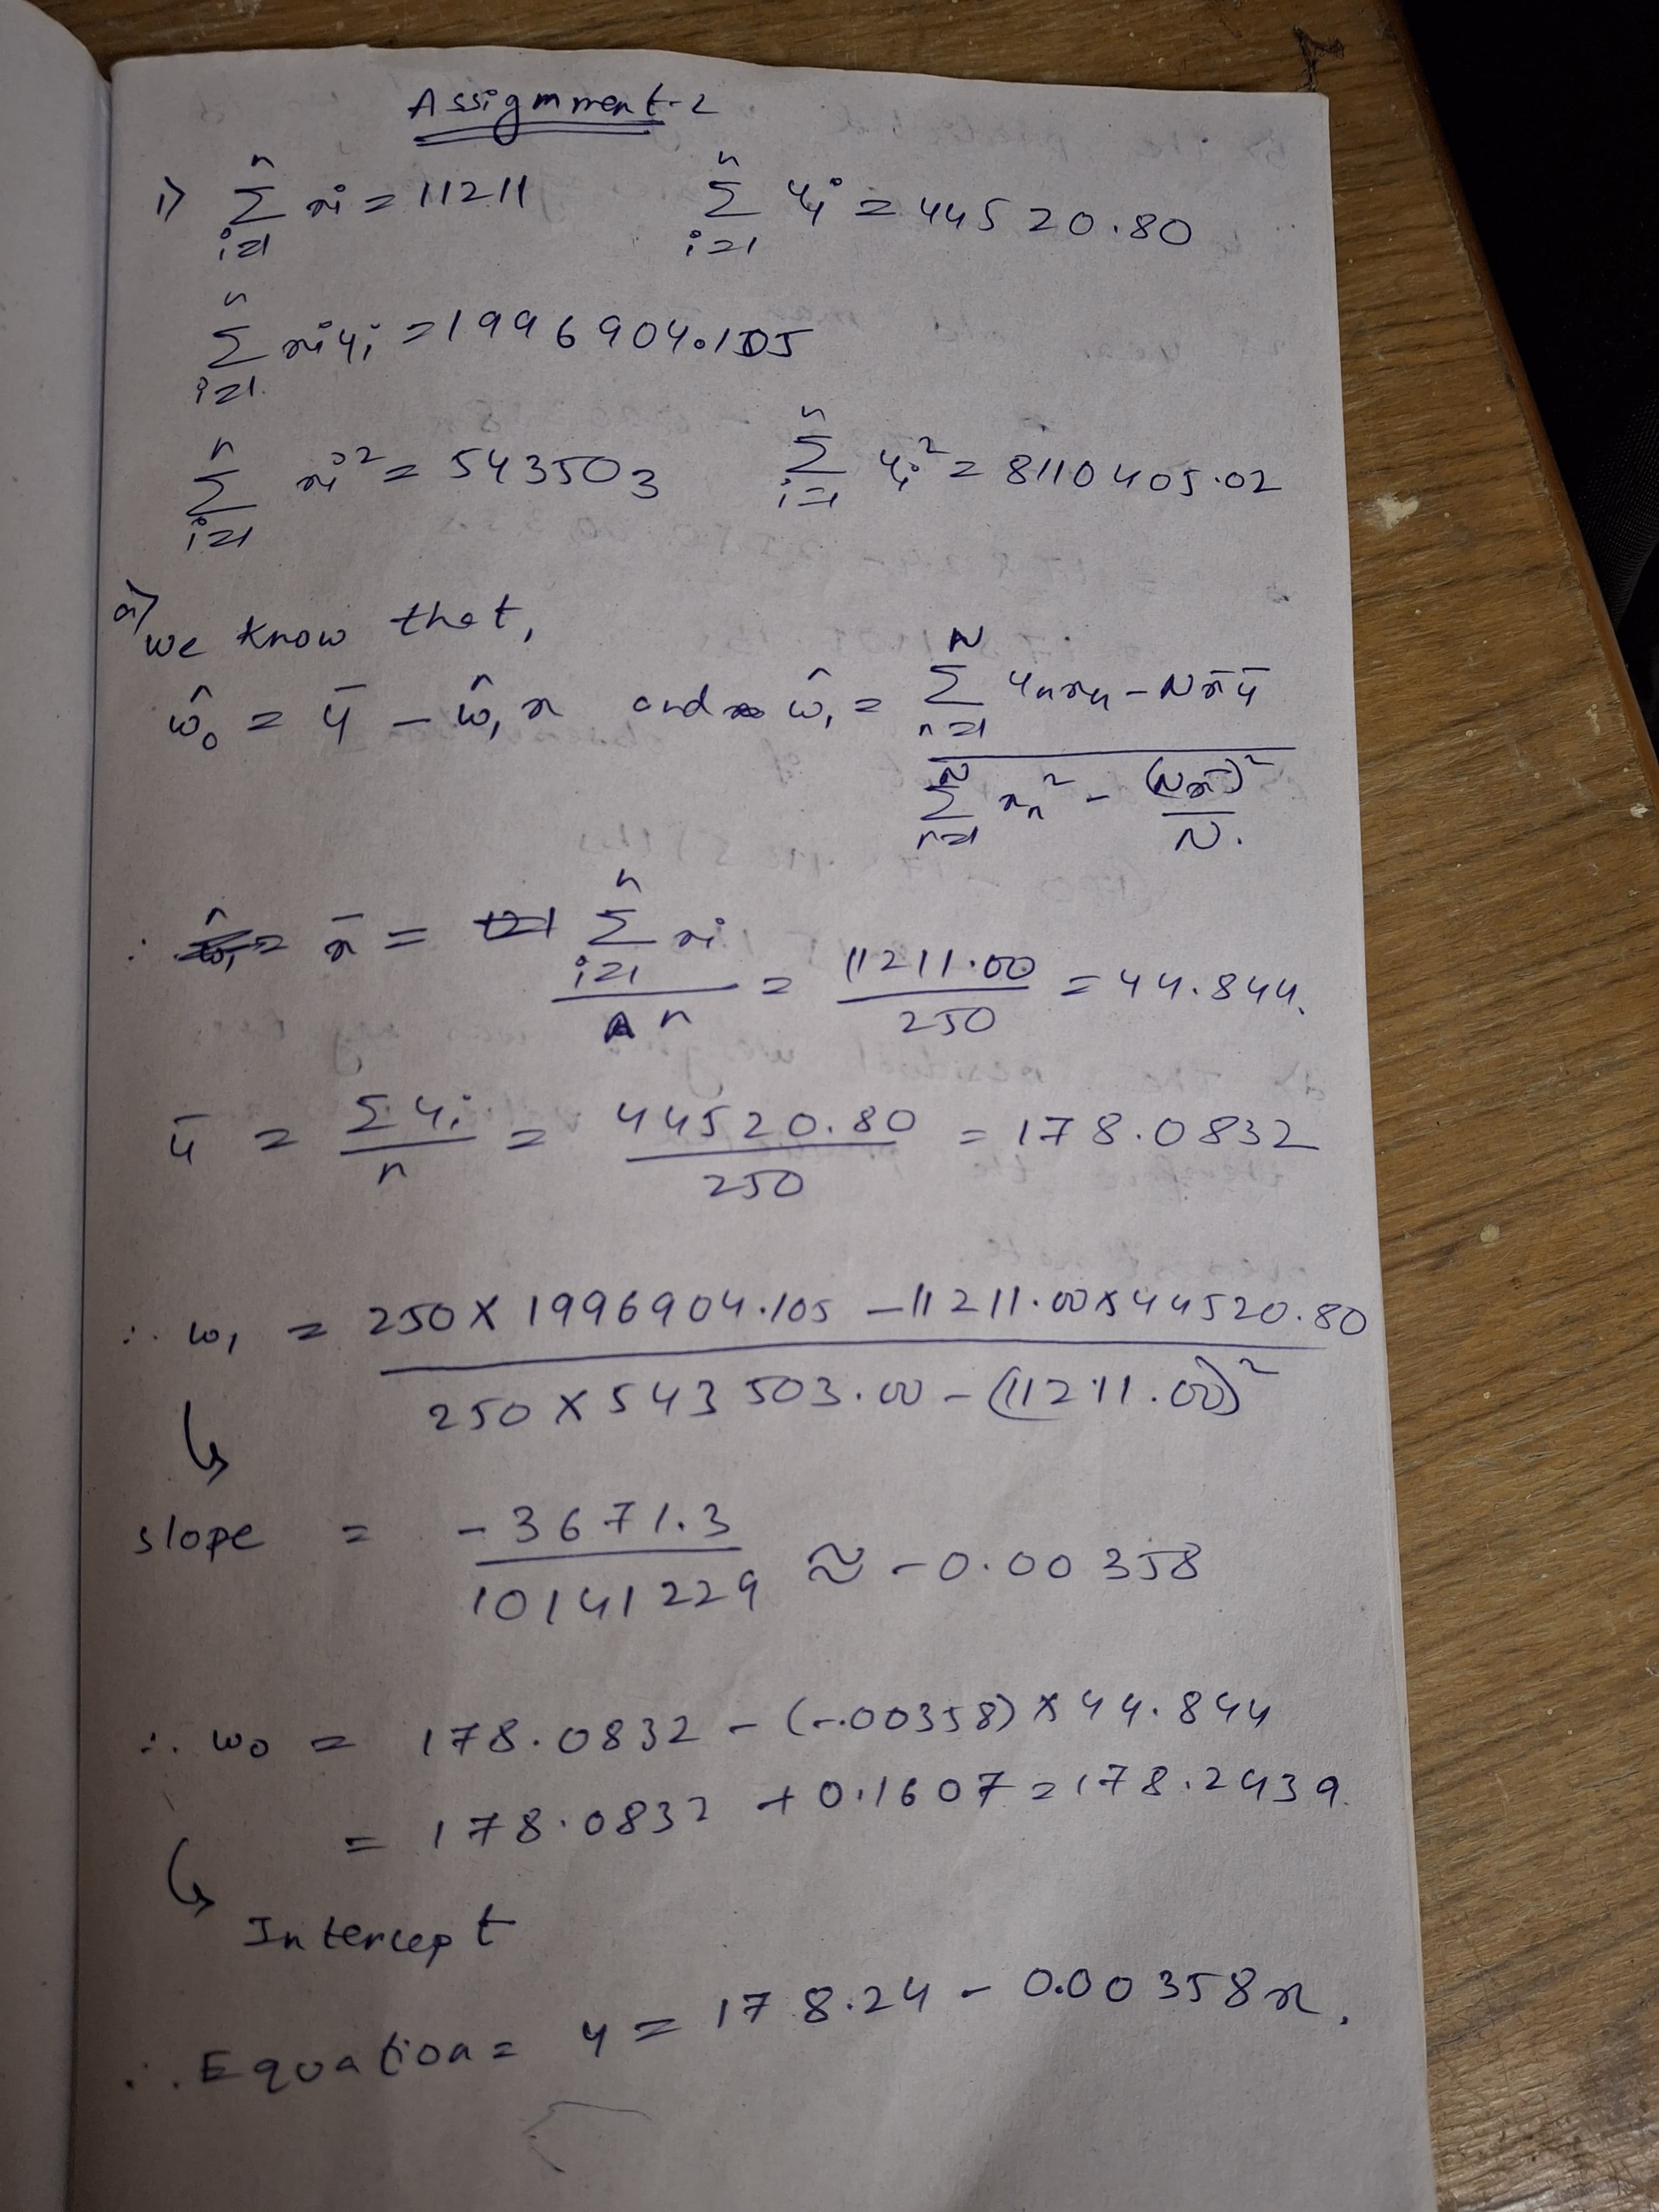 Assignment-2
1) n∑i=1 xi = 11211 n∑i=1 yi = 44520.80
n∑i=1 xiyi = 1996904.105
n∑i=1 xi² = 543503 n∑i=1 yi² = 8110405.02
a) we know that,
ŵ₀ = ȳ - ŵ₁x and ŵ₁ = (N∑n=1 ynxn - Nx̄ȳ) / (N∑n=1 xn² - (Nx̄)²/N.)
∴ x̄ = (n∑i=1 xi)/n = 11211.00/250 = 44.844.
ȳ = ∑yi/n = 44520.80/250 = 178.0832
∴ w₁ = (250 × 1996904.105 - 11211.00 × 44520.80) / (250 × 543503.00 - (11211.00)²)
↳
slope = -3671.3/10141229 ≈ -0.00358
∴ w₀ = 178.0832 - (-.00358) × 44.844
= 178.0832 + 0.1607 = 178.2439.
↳ Intercept
∴ Equation = y = 178.24 - 0.00358x.